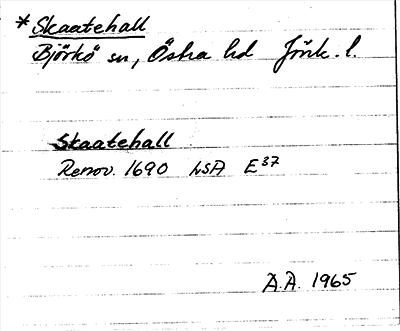 *Skaatehall
Björkö sn, Östra hd Jönk. l.
Skaatehall
Renov. 1690 LSA E37
A.A. 1965